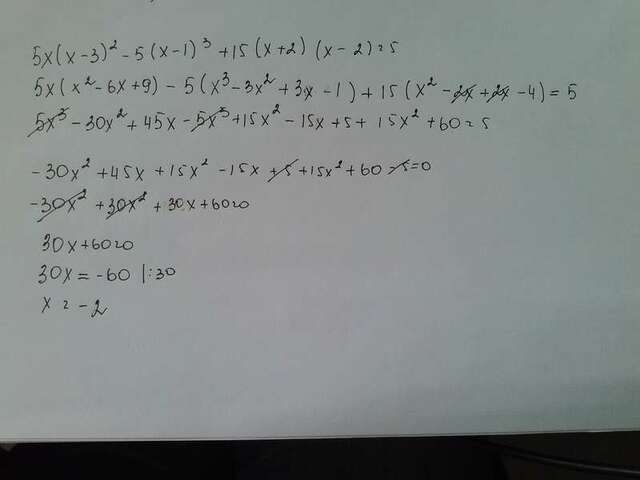 5x(x-3)² - 5(x-1)³ + 15(x+2)(x-2) = 5
5x(x² - 6x + 9) - 5(x³ - 3x² + 3x - 1) + 15(x² - 2x + 2x - 4) = 5
5x³ - 30x² + 45x - 5x³ + 15x² - 15x + 5 + 15x² + 60 = 5
- 30x² + 45x + 15x² - 15x + 5 + 15x² + 60 - 5 = 0
- 30x² + 30x² + 30x + 60 = 0
30x + 60 = 0
30x = -60 |:30
x = -2